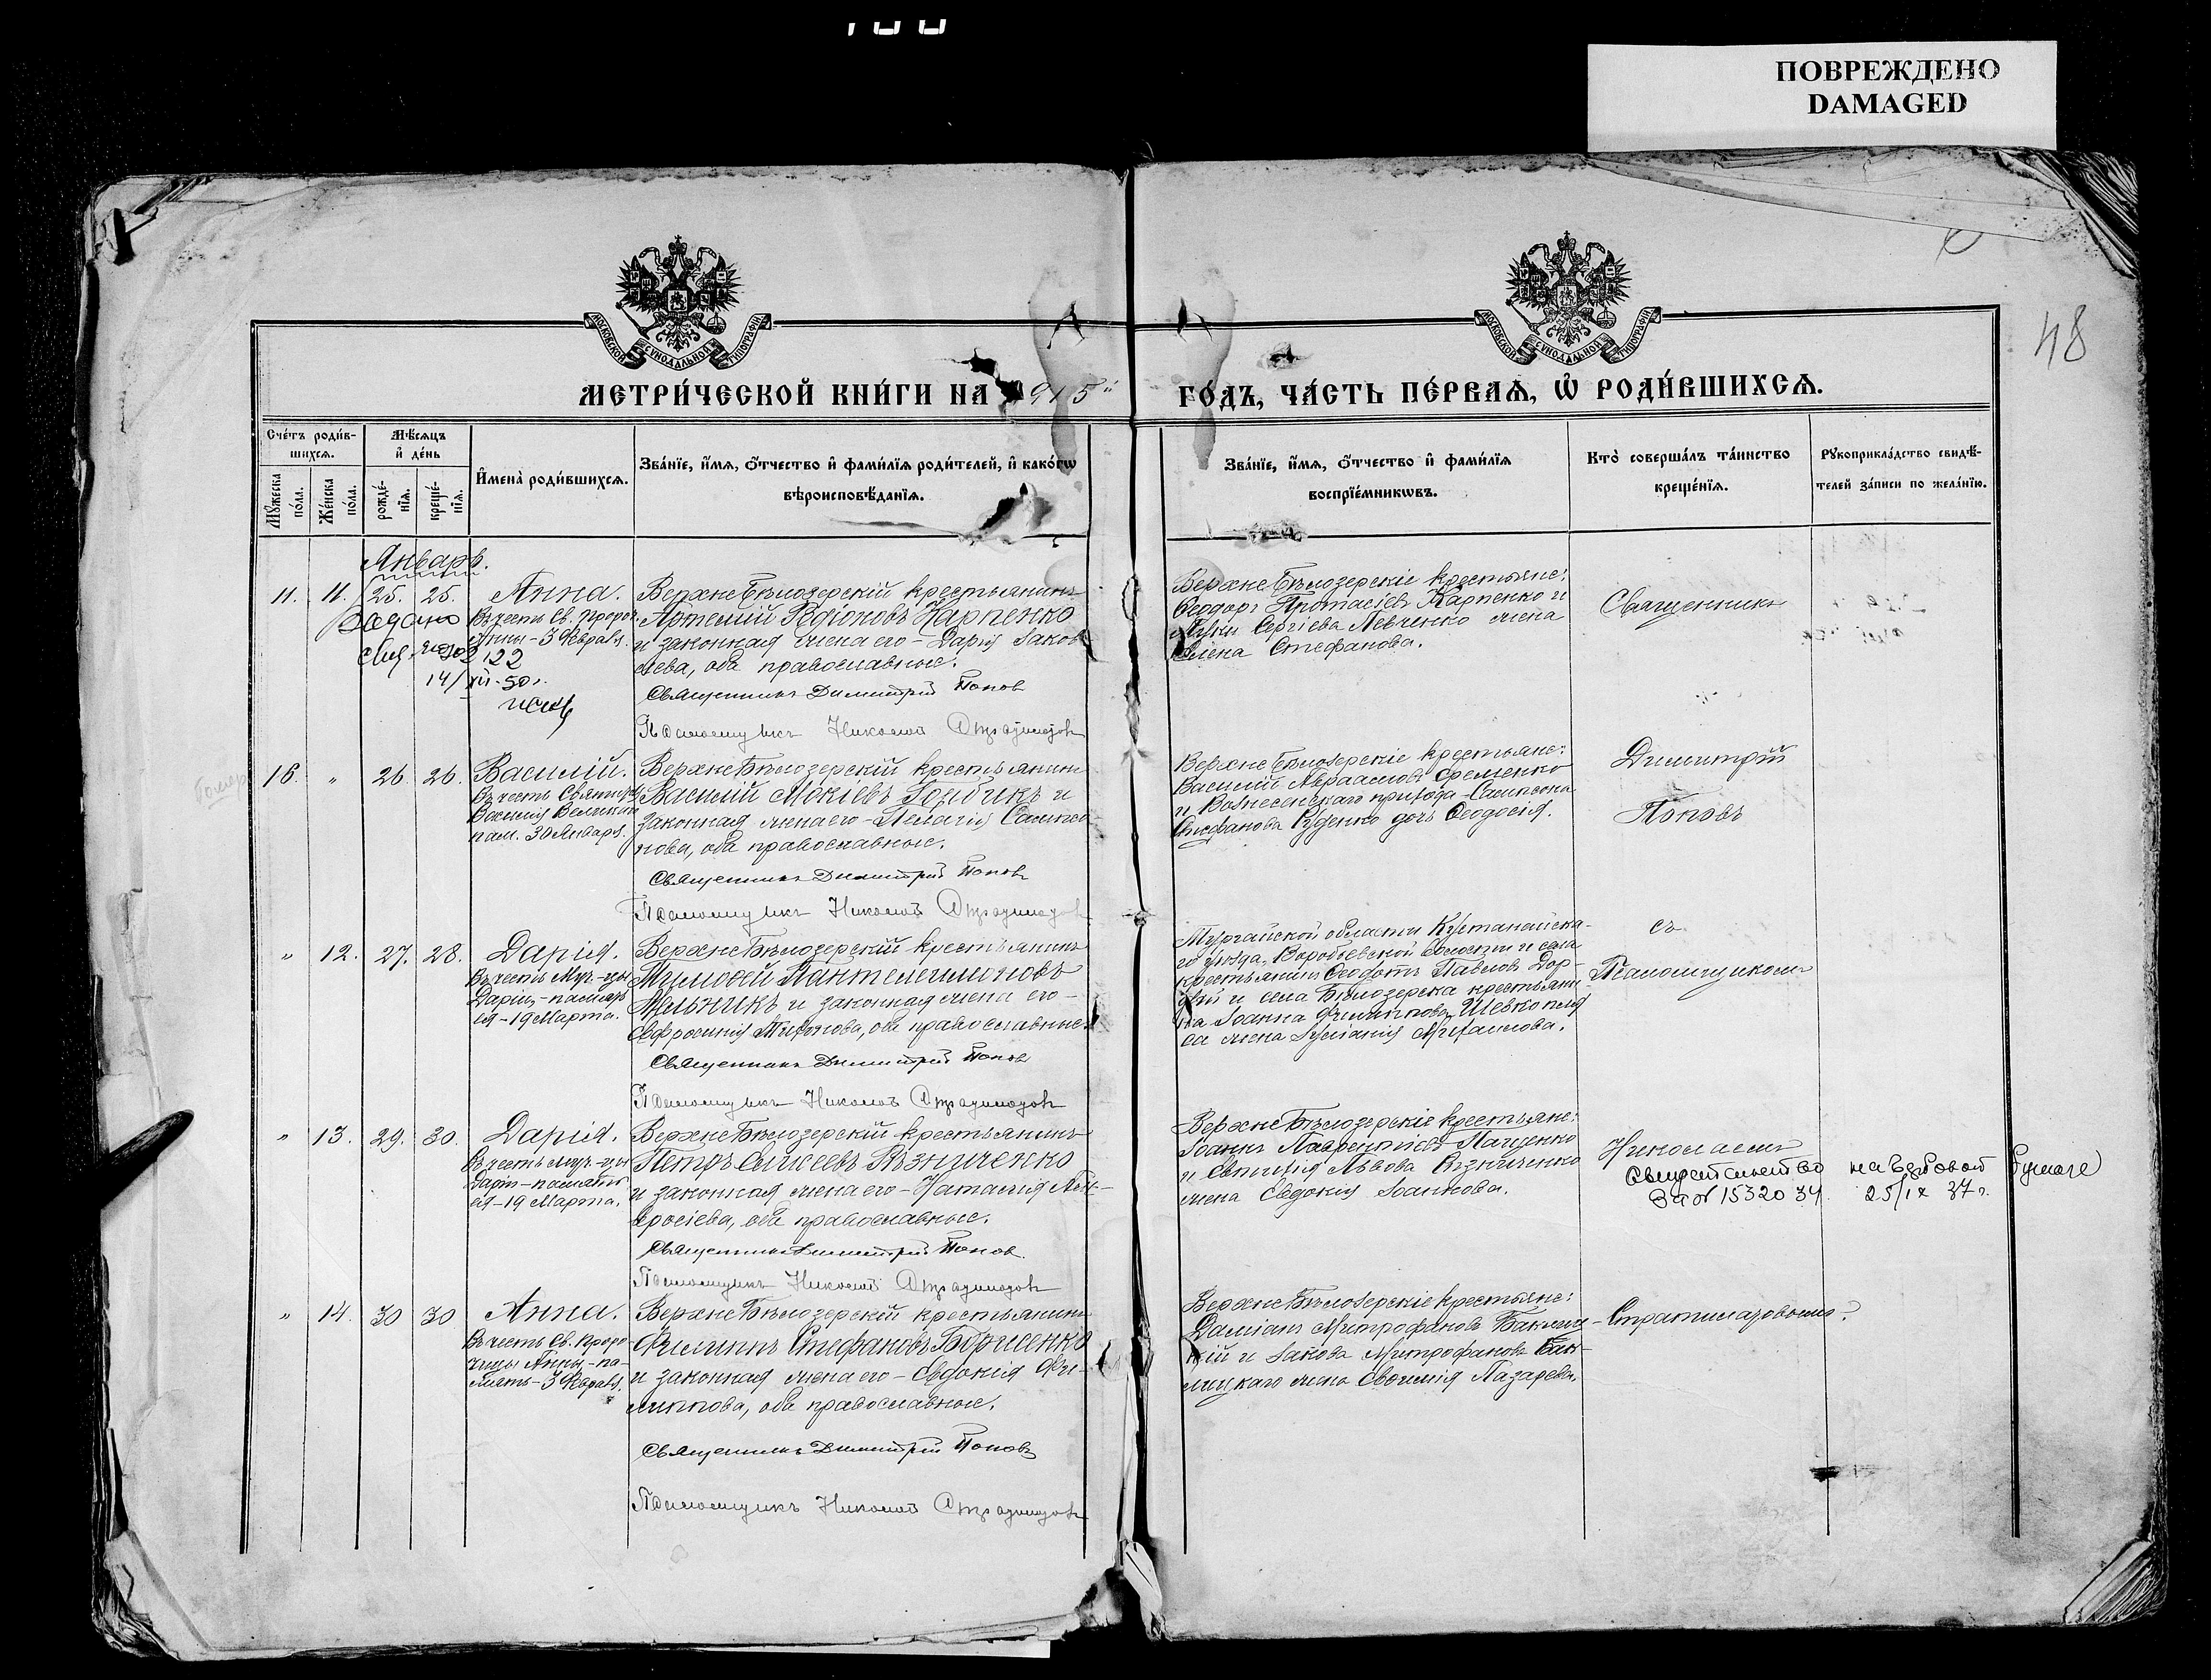 ПОВРЕЖДЕНО
DAMAGED
48
МОСКОВСКОЙ СУНОДАЛЬНОЙ ТИПОГРАФІИ
МОСКОВСКОЙ СУНОДАЛЬНОЙ ТИПОГРАФІИ
МЕТРИ́ЧЕСКОЙ КНИ́ГИ НА 915й ГО́ДЪ, ЧА́СТЬ ПЕ́РВАѦ, Ѡ҆ РОДИ́ВШИХСѦ.
Сче́тъ роди́в-
шихсѧ.
Мꙋ́жеска по́ла.
Же́нска по́ла.
Мѣ́сѧцъ
и҆ де́нь
рожде́-
нїѧ.
креще́-
нїѧ.
И҆мена̀ роди́вшихсѧ.
Зва́нїе, и҆́мѧ, ѻ҆́тчество и҆ фами́лїѧ роди́телей, и҆ како́гѡ
вѣроисповѣ́данїѧ.
Зва́нїе, и҆́мѧ, ѻ҆́тчество и҆ фами́лїѧ
воспрїе́мникѡвъ.
Кто̀ соверша́лъ та́инство
креще́нїѧ.
Рꙋкоприкла́дство свидѣ́-
телей за́писи по жела́нїю.
Январь.
11. 11. 25. 25. Анна.
Въ честь Св. Пророч.
Анны - 3 Февраля.
Выдано
2122
14/XII-50г.
ВерхнеБѣлозерскій крестьянинъ
Артемій Родіоновъ Карпенко
и законная жена его - Дарія Іаков-
лева, оба православные.
Священникъ Димитрій Поповъ
Псаломщикъ Николай Стратилатовъ
ВерхнеБѣлозерскіе крестьяне:
Ѳеодоръ Протасіевъ Карпенко и
Луки Сергіева Левченко жена
Елена Стефанова.
Священникъ
16. " 26. 26. Василій.
Въ честь Святит.
Василія Великаго
пам. 30 Января.
ВерхнеБѣлозерскій крестьянинъ
Василій Мокіевъ Голубикъ и
законная жена его - Пелагія Сампсо-
нова, оба православные.
Священникъ Димитрій Поповъ
Псаломщикъ Николай Стратилатовъ
ВерхнеБѣлозерскіе крестьяне:
Василій Авраамовъ Еременко
и Вознесенскаго прихода - Сампсона
Стефанова Руденко дочь Ѳеодосія.
Димитрій
Поповъ
" 12. 27. 28. Дарія.
Въ честь Муч-цы
Даріи, - память
ея - 19 Марта.
ВерхнеБѣлозерскій крестьянинъ
Тимоѳей Пантелеимоновъ
Мельникъ и законная жена его -
Евфросинія Тихонова, оба православные.
Священникъ Димитрій Поповъ
Псаломщикъ Николай Стратилатовъ
Тургайской области Кустанайска-
го уѣзда, Воробьевской волости и села
крестьянинъ Ѳеодотъ Павловъ Дор-
и села Бѣлозерска крестьяни-
на Іоанна Филиппова Шевкопляс-
са жена Іуліанія Михаилова.
съ
Псаломщикомъ
" 13. 29. 30. Дарія.
Въ честь Муч-цы
Даріи - память
ея - 19 Марта.
ВерхнеБѣлозерскій крестьянинъ
Петръ Алексеевъ Рѣзниченко
и законная жена его - Наталія Ам-
вросіева, оба православные.
Священникъ Димитрій Поповъ.
Псаломщикъ Николай Стратилатовъ
ВерхнеБѣлозерскіе крестьяне:
Іоаннъ Лаврентіевъ Пащенко
и Евтихія Львова Рѣзниченко
жена Евдокія Іоаннова.
Николаемъ
Свидетельство на гербовой бумаге
за № 1532034. 25/IX 37г.
" 14. 30 30 Анна.
Въ честь Св. Проро-
чицы Анны - па-
мять - 3 Февраля.
ВерхнеБѣлозерскій крестьянинъ
Филиппъ Стефановъ Борисенко
и законная жена его - Евдокія Фи-
липпова, оба православные.
Священникъ Димитрій Поповъ
Псаломщикъ Николай Стратилатовъ
ВерхнеБѣлозерскіе крестьяне:
Даміанъ Митрофановъ Баклиц-
кій и Іакова Митрофанова Бак-
лицкаго жена Евѳимія Лазарева.
Стратилатовымъ.